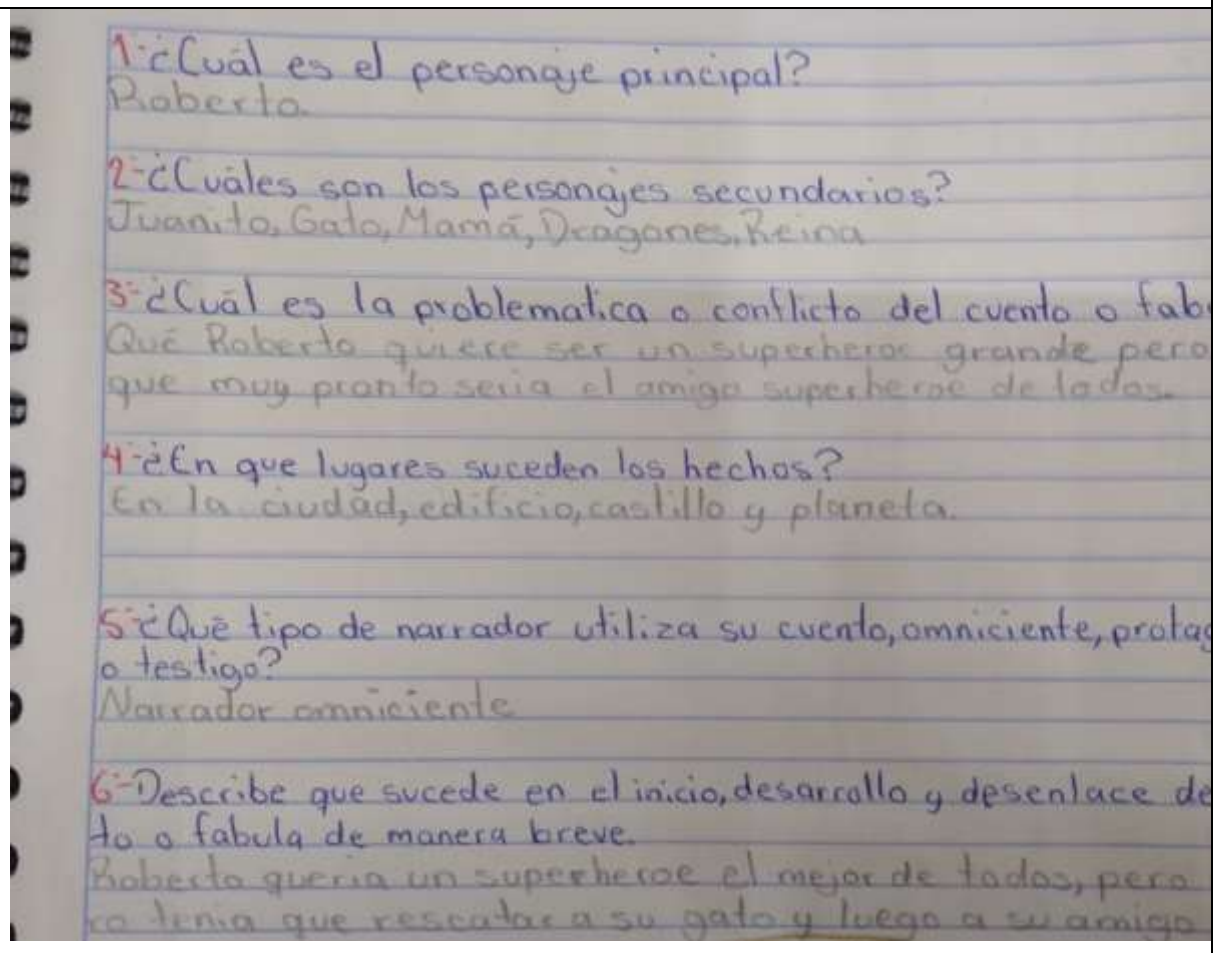 1-¿Cuál es el personaje principal?
Roberto
2-¿Cuáles son los personajes secundarios?
Juanito, Gato, Mamá, Dragones, Reina
3-¿Cuál es la problematica o conflicto del cuento o fab
Qué Roberto quiere ser un superheroe grande pero
que muy pronto seria el amigo superheroe de todos.
4-¿En que lugares suceden los hechos?
En la ciudad, edificio, castillo y planeta.
5-¿Qué tipo de narrador utiliza su cuento, omniciente, protag
o testigo?
Narrador omniciente
6-Describe que sucede en el inicio, desarrollo y desenlace de
to o fabula de manera breve.
Roberto queria un superheroe el mejor de todos, pero
ro tenia que rescatar a su gato y luego a su amigo